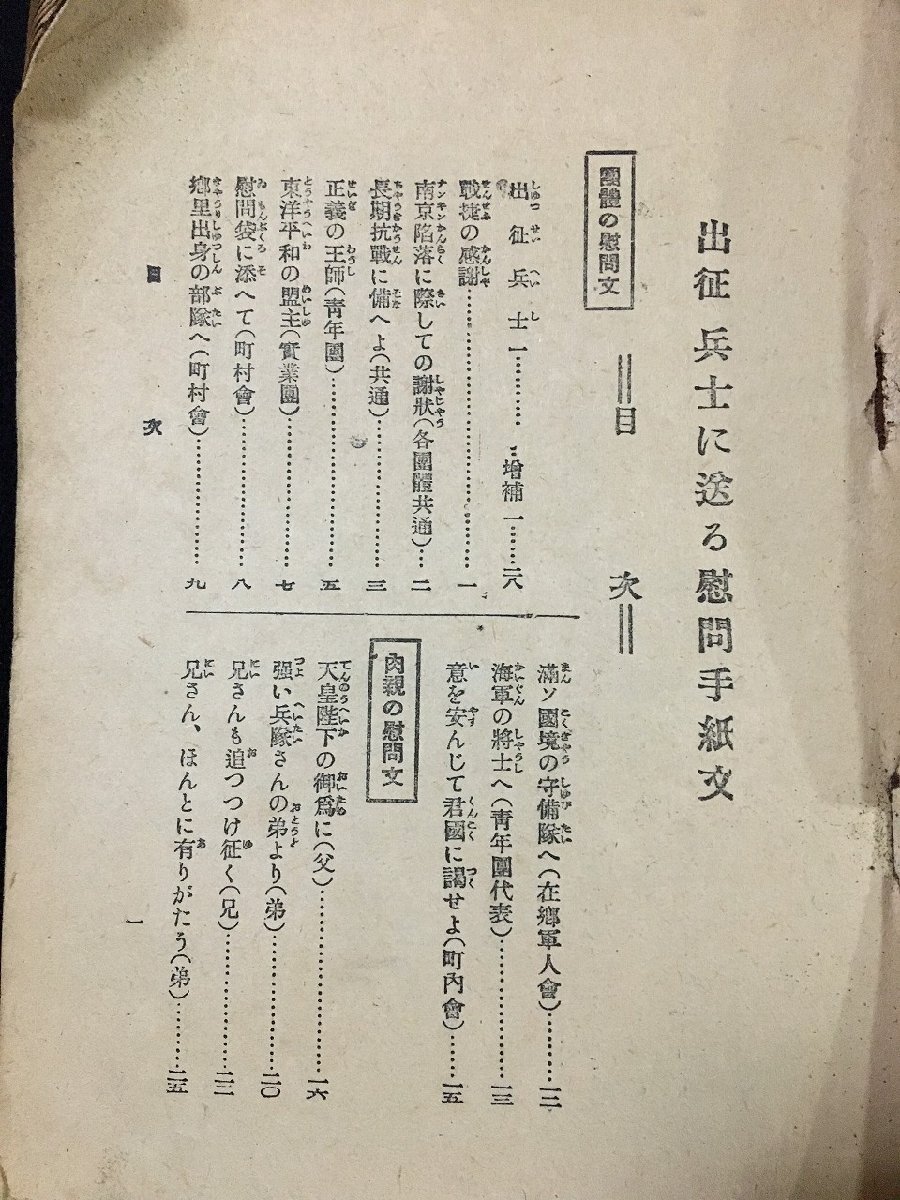 出征兵士に送る慰問手紙文
＝目次＝
團體の慰問文
出征兵士一………増補一……二八
戰捷の感謝……………………一
南京陷落に際しての謝狀(各團體共通)…二
長期抗戰に備へよ(共通)…………三
正義の王師(靑年團)……………五
東洋平和の盟主(實業團)…………七
慰問袋に添へて(町村會)…………八
鄕里出身の部隊へ(町村會)…………九
滿ソ國境の守備隊へ(在鄕軍人會)………一二
海軍の將士へ(靑年團代表)…………一三
意を安んじて君國に謁せよ(町內會)……一五
肉親の慰問文
天皇陛下の御爲に(父)……………一六
强い兵隊さんの弟より(弟)…………二〇
兄さんも追つつけ征く(兄)…………二三
兄さん、ほんとに有りがたう(弟)………二五
目次
一